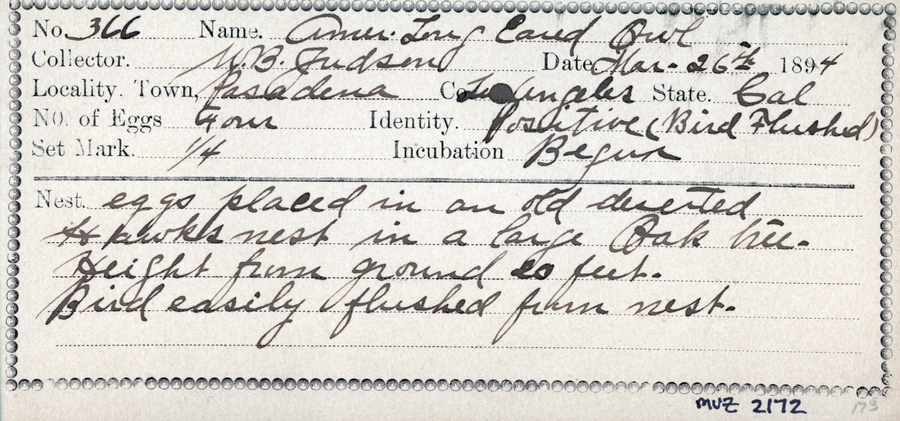 No. 366 Name. Amer. Long Eared Owl
Collector. W.B. Judson Date Mar. 26th 1894
Locality. Town, Pasadena Co. Los Angeles State. Cal
No. of Eggs Four Identity. Positive (Bird Flushed)
Set Mark. 1/4 Incubation Begun
Nest. eggs placed in an old deserted
Hawks nest in a large Oak tree.
Height from ground feet.
Bird easily flushed from nest.
MVZ 2172 173